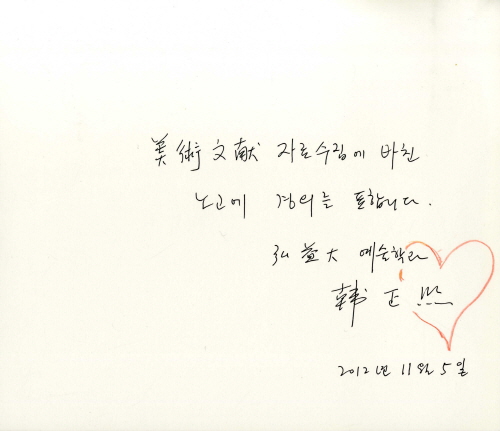 美術文献 자료수집에 바친
노고에 경의를 표합니다.
弘益大 예술학과
韓正熙
2012년 11월 5일